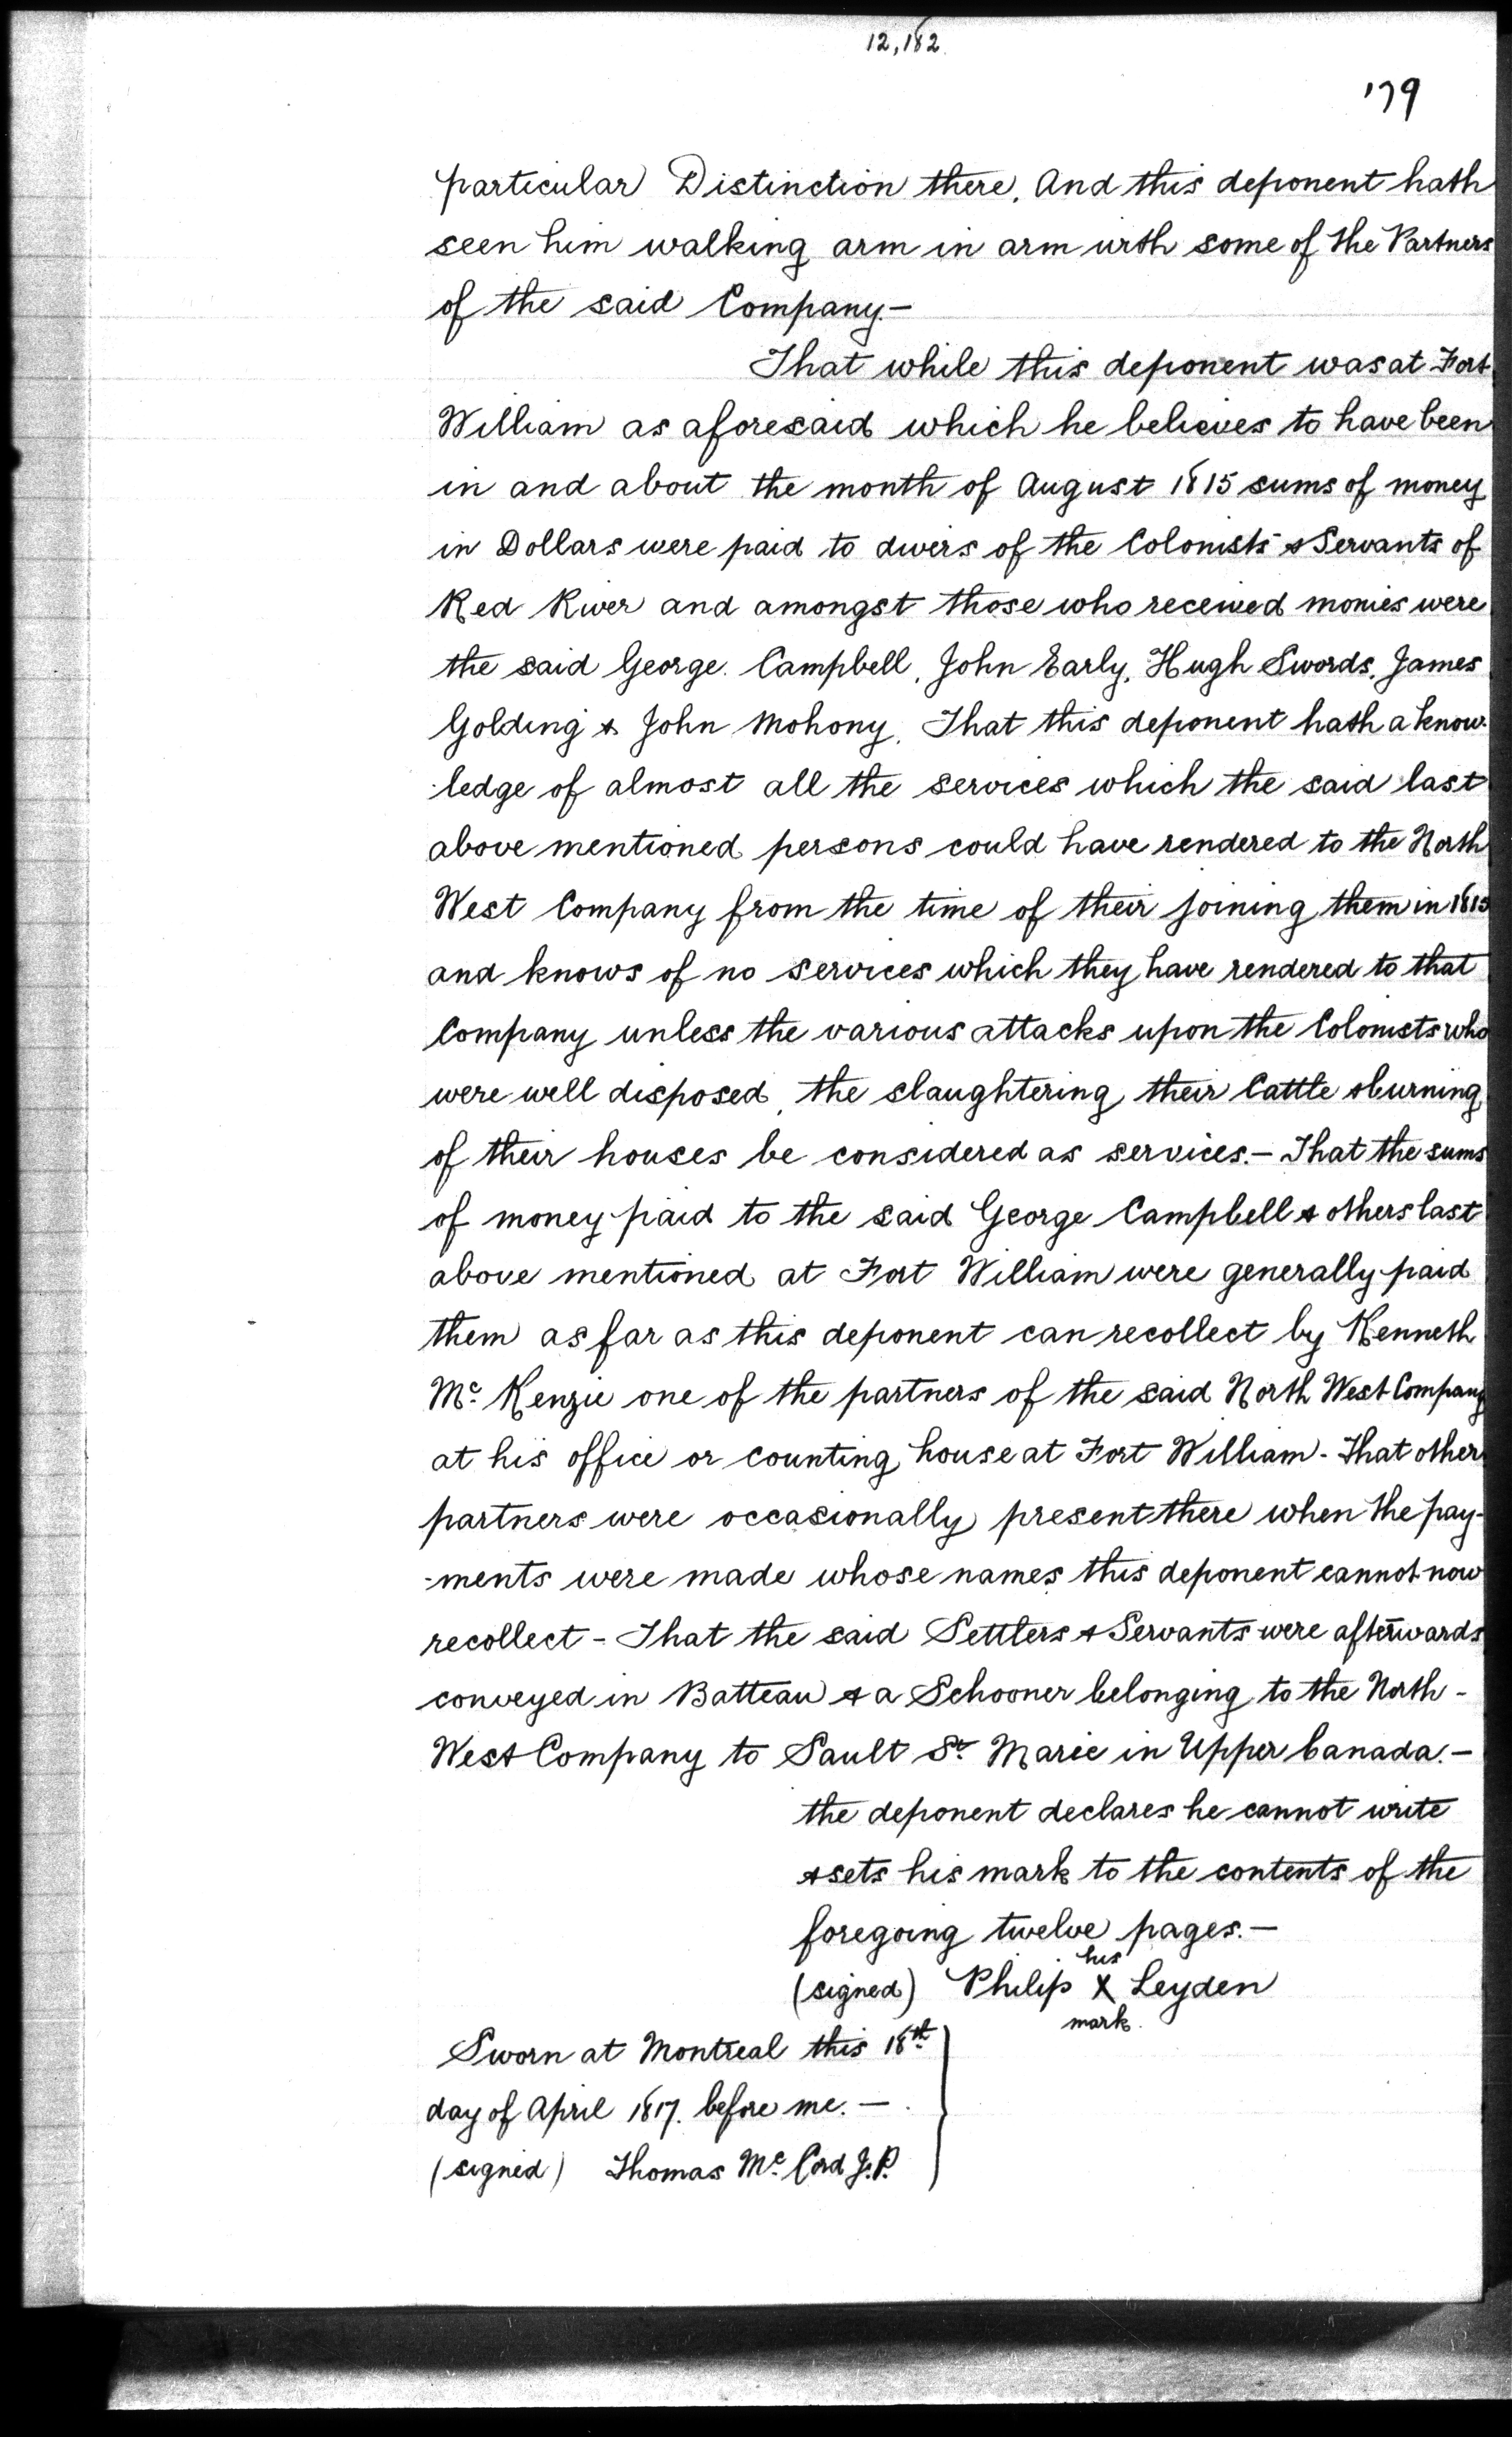 12,182
179
particular Distinction there. And this deponent hath
seen him walking arm in arm with some of the Partners
of the said Company.—
That while this deponent was at Fort
William as aforesaid which he believes to have been
in and about the month of August 1815 sums of money
in Dollars were paid to divers of the Colonists & Servants of
Red River and amongst those who received monies were
the said George Campbell, John Early, Hugh Swords, James
Golding & John Mohony. That this deponent hath a know-
-ledge of almost all the services which the said last
above mentioned persons could have rendered to the North
West Company from the time of their joining them in 1815
and knows of no services which they have rendered to that
Company unless the various attacks upon the Colonists who
were well disposed, the slaughtering their Cattle & burning
of their houses be considered as services.— That the sums
of money paid to the said George Campbell & others last
above mentioned at Fort William were generally paid
them as far as this deponent can recollect by Kenneth
Mc. Kenzie one of the partners of the said North West Company
at his office or counting house at Fort William - That other
partners were occasionally present there when the pay-
-ments were made whose names this deponent cannot now
recollect - That the said Settlers & Servants were afterwards
conveyed in Batteau & a Schooner belonging to the North-
West Company to Sault St. Marie in Upper Canada.—
the deponent declares he cannot write
& sets his mark to the contents of the
foregoing twelve pages.—
his
(signed) Philip X Leyden
mark.
Sworn at Montreal this 18th
day of April 1817. before me.—
(signed) Thomas Mc. Cord J.P.